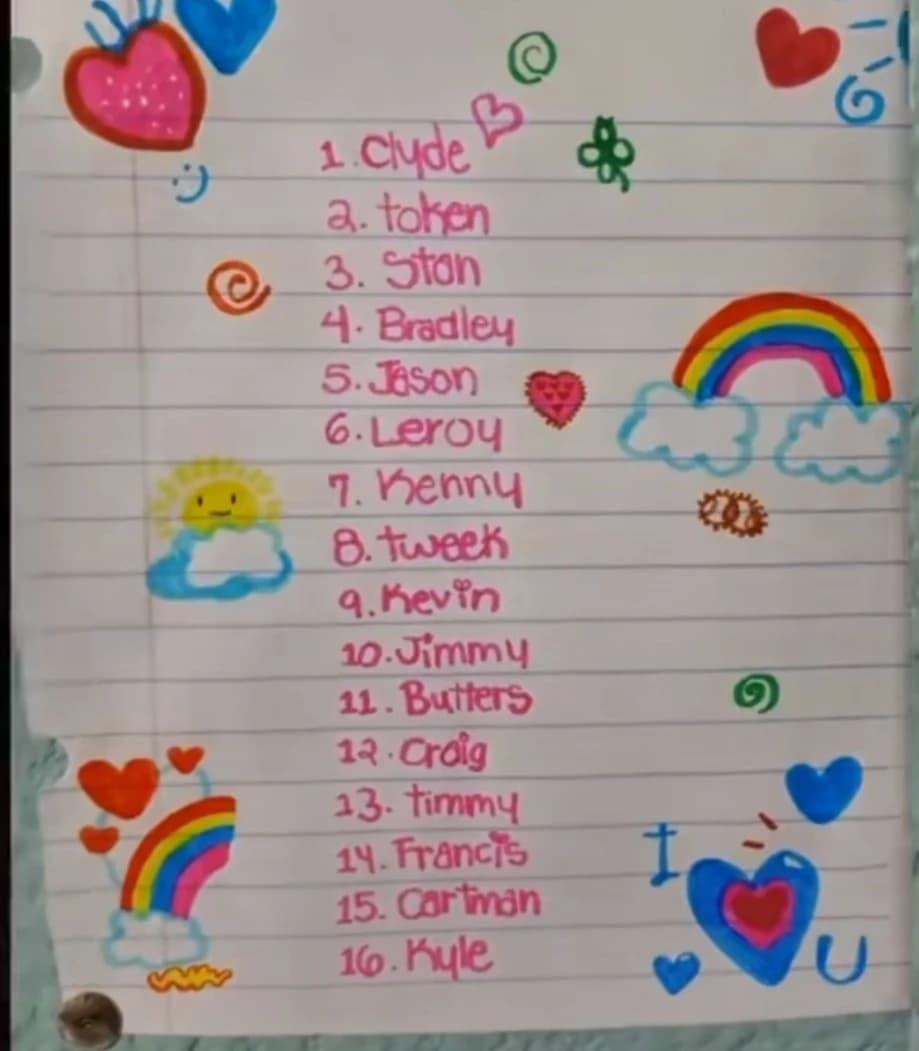 1. Clyde
2. token
3. Stan
4. Bradley
5. Jason
6. Leroy
7. Kenny
8. tweek
9. Kevin
10. Jimmy
11. Butters
12. Craig
13. timmy
14. Francis
15. Cartman
16. Kyle
I
U